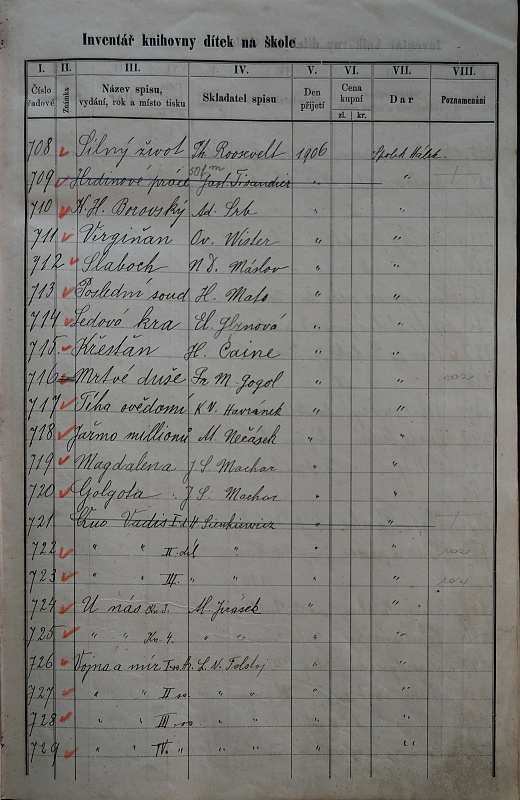 Inventář knihovny dítek na škole
I. II. III. IV. V. VI. VII. VIII.
Číslo řadové Známka Název spisu, vydání, rok a místo tisku Skladatel spisu Den přijetí Cena kupní zl. kr. Dar Poznamenání
708 Silný život Th. Roosevelt 1906 Spolek Hálek.
709 Hrdinové práce Gast. Tisandier "  "
710 K. H. Borovský Ad. Srb " "
711 Virgiňan Ov. Wister " "
712 Slaboch N. D. Máslov " "
713 Poslední soud H. Mato " "
714 Ledová kra El. " "
715 Křesťan H. Caine " "
716 Mrtvé duše M. Gogol " "
717 Tíha svědomí K. V. Havránek " "
718 Jařmo millionů M. Nečásek " "
719 Magdalena J. S. Machar " "
720 Golgota J. S. Machar " "
721 Quo Vadis I. d. H. Sienkiewicz " "
722 " " II. díl " " "
723 " " III. " " "
724 U nás Kn. 3. Al. Jirásek " "
725 " " Kn. 4. " " " "
726 Vojna a mír I. L. N. Tolstoj " "
727 " " II " " " "
728 " " III " " " "
729 " " IV. " " " " "